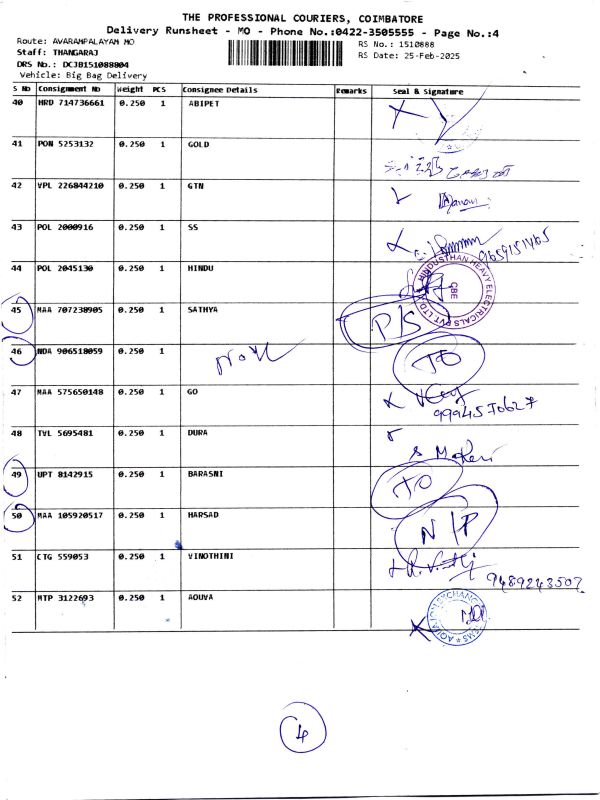 THE PROFESSIONAL COURIERS, COIMBATORE
Delivery Runsheet - MO - Phone No.:0422-3505555 - Page No.:4
Route: AVARAMPALAYAM MO
RS No.: 1510888
Staff: THANGARAJ
RS Date: 25-Feb-2025
DRS No.: DCJB151088804
Vehicle: Big Bag Delivery
S No Consignment No Weight PCS Consignee Details Remarks Seal & Signature
40 HRD 714736661 0.250 1 ABIPET
41 PON 5253132 0.250 1 GOLD
42 VPL 226844210 0.250 1 GTN
43 POL 2000916 0.250 1 SS
9659151465
44 POL 2045130 0.250 1 HINDU
HINDUSTHAN HEAVY ELECTRICALS PVT LTD CBE
45 MAA 707238905 0.250 1 SATHYA P/S
46 NDA 906518059 0.250 1 TO
47 MAA 575650148 0.250 1 GO
9994570627
48 TVL 5695481 0.250 1 DURA
49 UPT 8142915 0.250 1 BARASNI TO
50 MAA 105920517 0.250 1 HARSAD N/P
51 CTG 559053 0.250 1 VINOTHINI
9489243507
52 MTP 3122693 0.250 1 AQUVA
4